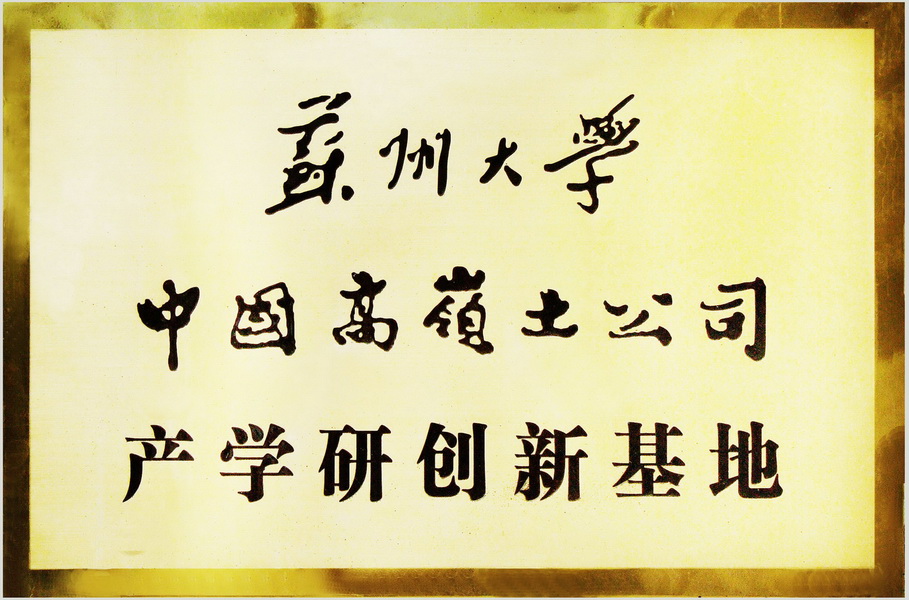 蘇州大學
中国高嶺土公司
产学研创新基地